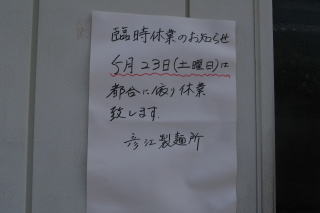 臨時休業のお知らせ
5月23日(土曜日)は
都合に依り休業
致します.
彦江製麺所